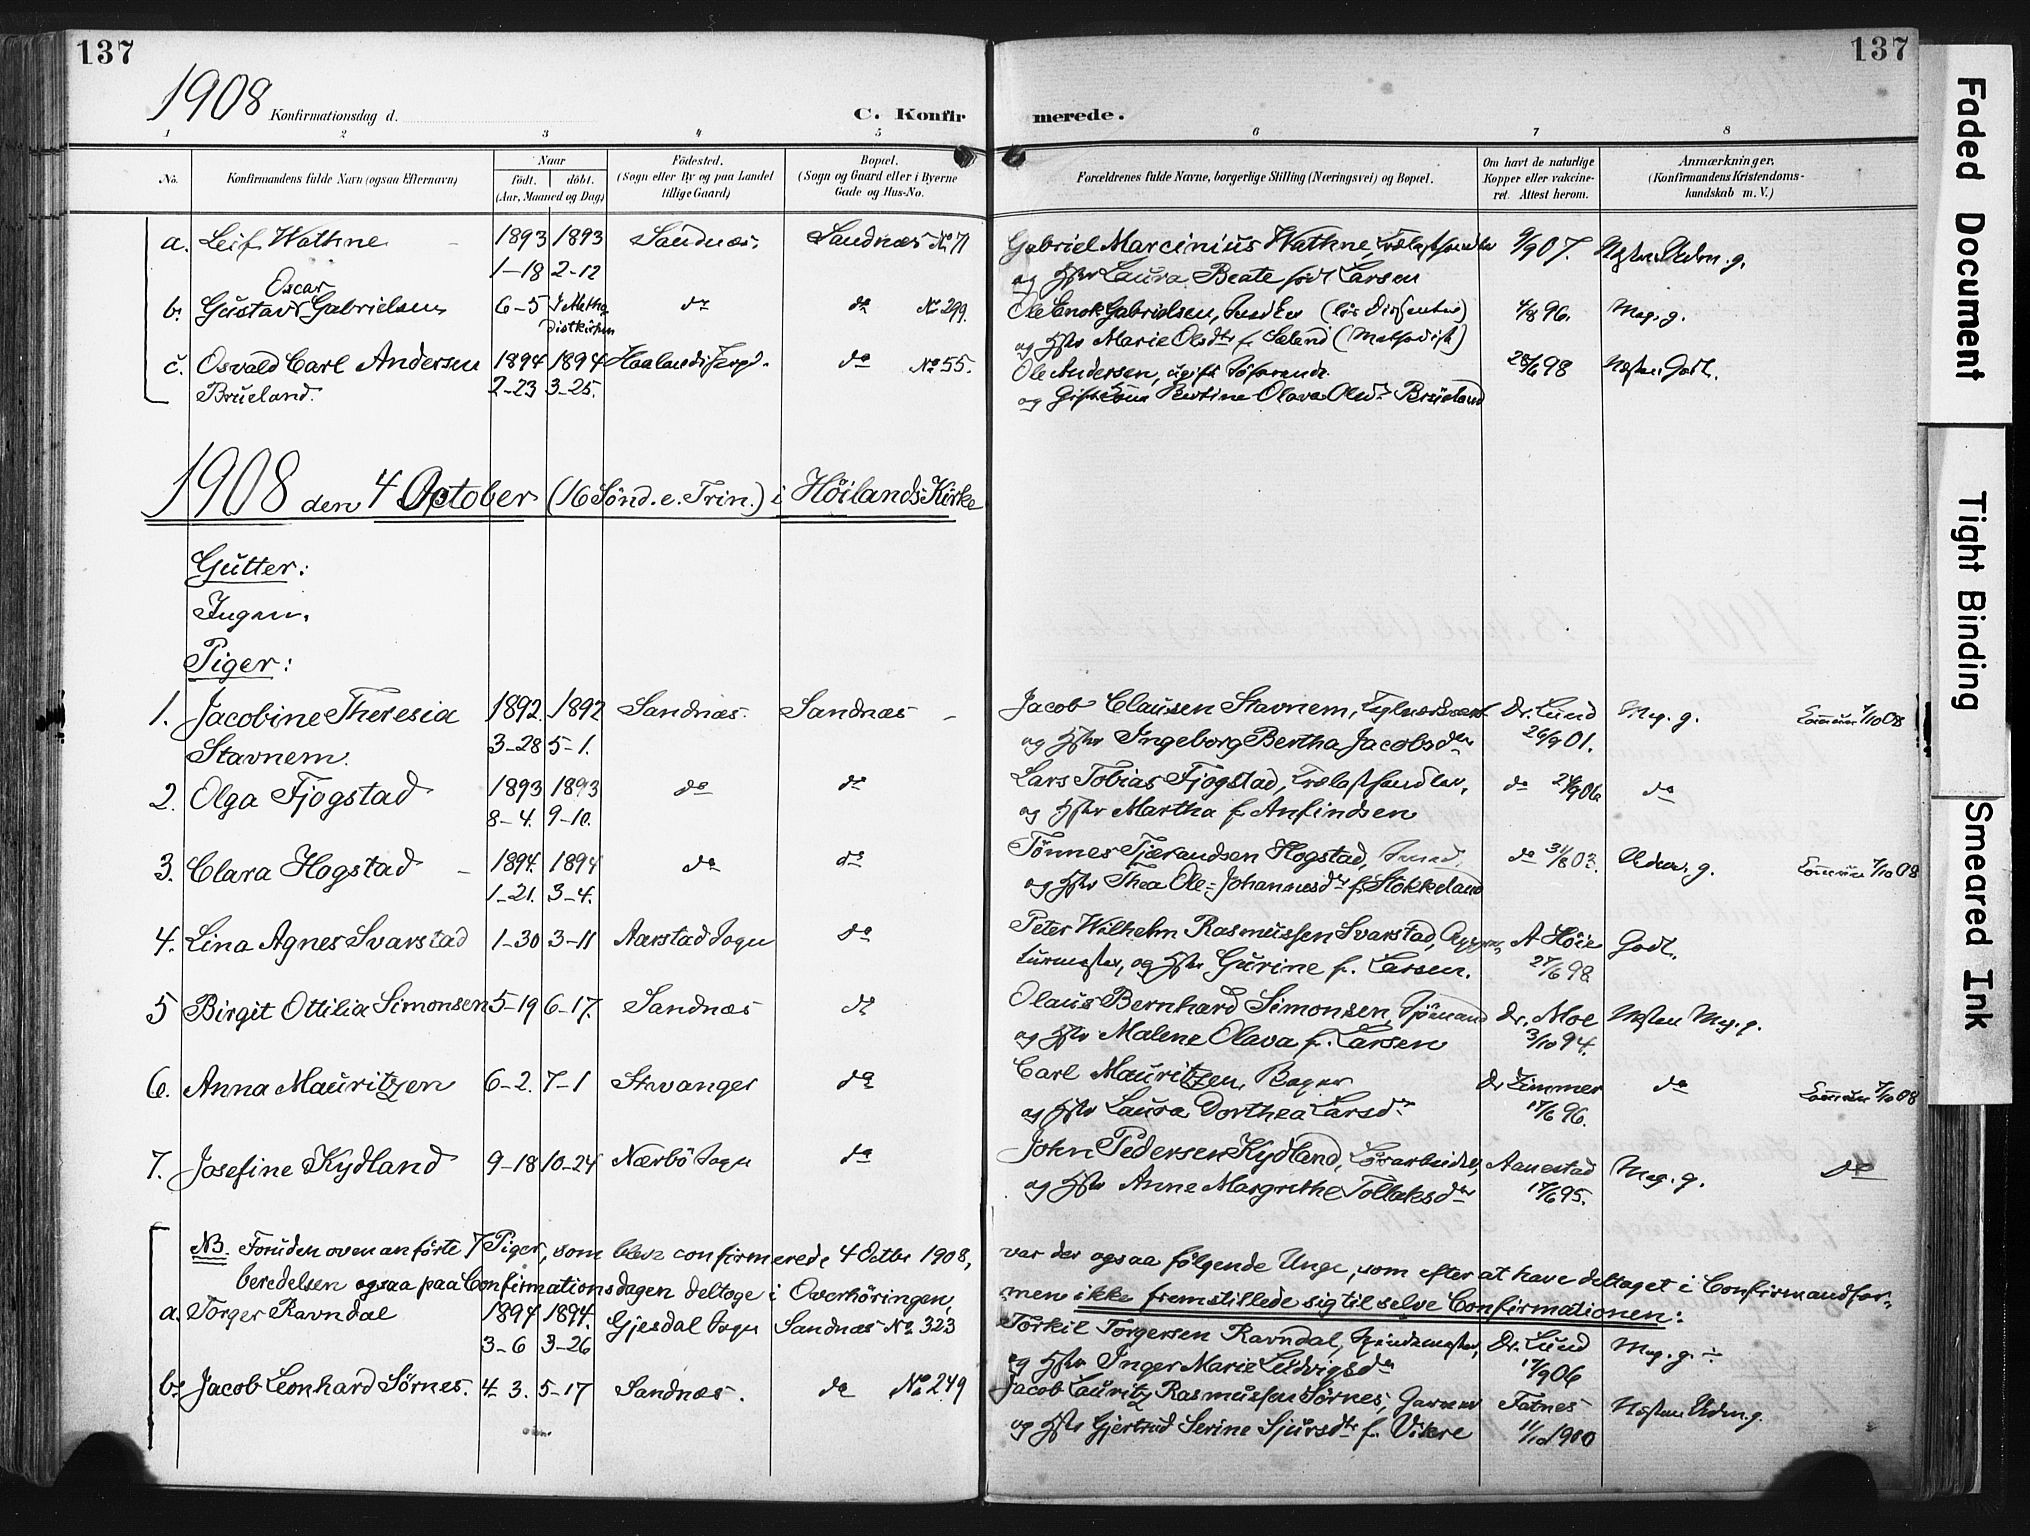 137
137
1908 Konfirmationsdag d. C. Konfirmerede.
1 2 3 4 5 6 7 8
No. Konfirmandens fulde Navn (ogsaa Efternavn) Naar født. døbt. (Aar, Maaned og Dag) Fødested. (Sogn eller By og paa Landet tillige Gaard) Bopæl. (Sogn og Gaard eller i Byerne Gade og Hus-No. Forældrenes fulde Navne, borgerlige Stilling (Næringsvei) og Bopæl. Om havt de naturlige Kopper eller vakcineret. Attest herom. Anmærkninger. (Konfirmandens Kristendomskundskab m. V.)
a. Leif Wathne 1893 1893 Sandnæs. Sandnæs No. 71 Gabriel Marcinius Wathne, Trælasthandler 907. Næsten Udm. g.
1-18 2-12 og Hstr Laura Beate født Larsen
Oscar
b. Gustav Gabrielsen 6-5 do do No 299. Ole Enok Gabrielsen, (Dissenter) 4/8 96. Meg. g.
og Hstr Marie Olsdtr f. Sæland (Methodist)
c. Osvald Carl Andersen 1894 1894 do No 55. Ole Andersen, ugift 28/6 98 Næsten Godt.
Brueland. 2-23 3-25. og Bertine Olava Olsdr Brueland
1908 den 4 October (16 Sønd. e. Trin.) i Höilands Kirke
Gutter:
Ingen.
Piger:
1. Jacobine Theresia 1892. 1892 Sandnæs. Sandnæs - Jacob Clausen Stavnem, Dr. Lund Meg. g. 7/10 08
Stavnem. 3-28 5-1. og Hstr Ingeborg Bertha Jacobsdtr 26/9 01.
2. Olga Fjogstad 1893 1893 do do Lars Tobias Fjogstad, Trælasthandler, do 24/9 06 do
8-4. 9-10. og Hstr Martha f. Anfindsen
3. Clara Hogstad 1894. 1894 do do Tönnes Tjærandsen Hogstad, do 31/8 03. Udm. g. 7/10 08
1-21. 3-4. og Hstr Thea Ole-Johannesdtr f. Stokkeland
4. Lina Agnes Svarstad 1-30 3-11 Aarstad Sogn do Peter Wilhelm Rasmussen Svarstad, A. Höie Godt.
turmester, og Hstr Gurine f. Larsen. 27/6 98
5 Birgit Ottilia Simonsen 5-19 6-17. Sandnæs do Olaus Bernhard Simonsen, Sjömand Dr. Moe Næsten Meg. g.
og Hstr Malene Olava f. Larsen 3/10 94.
6. Anna Mauritzen 6-2. 7-1 Stavanger do Carl Mauritzen, Bager Dr Zimmer do 7/10 08
og Hstr Laura Dorthea Larsdtr 17/6 96.
7. Josefine Kydland 9-18 10-24 Nærbö Sogn do John Pedersen Kydland, Aanestad Meg. g. do
og Hstr Anne Margrethe Tollaksdtr 17/6 95.
NB. Foruden ovenanförte 7 Piger, som blev confirmerede 4 Octbr 1908, var der ogsaa fölgende Unge, som efter at have deltaget i Confirmandfor-
beredelsen ogsaa paa Confirmationsdagen deltoge i Overhöringen, men ikke fremstillede sig til selve Confirmationen:
a. Torger Ravndal 1894 1894. Gjesdal Sogn Sandnæs No 323 Torkil Torgersen Ravndal, Dr. Lund Meg. g. ÷
3-6 3-26 og Hstr Inger Marie Ludvigsdtr 17/9 06
b. Jacob Leonhard Sörnes. 4-3. 5-17 Sandnæs. do No 249 Jacob Lauritz Rasmussen Sörnes, Garver Fatnes Næsten Udm. g.
og Hstr Gjertrud Serine Sjursdtr f. Vikere 11/10 1900
Faded Document
Tight Binding
Smeared Ink